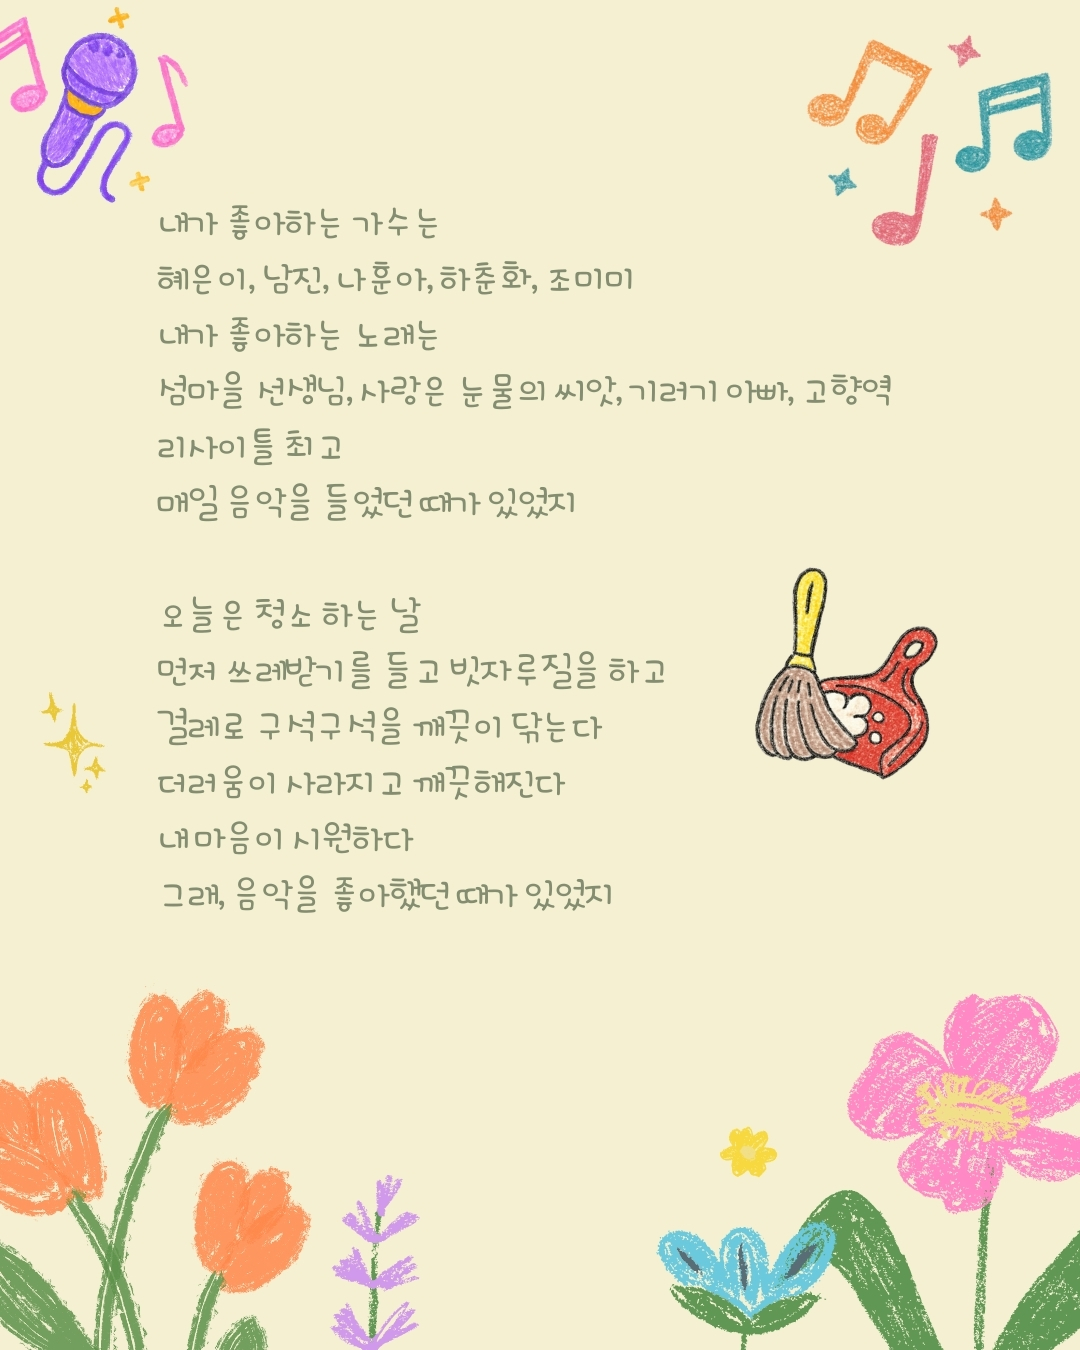 내가 좋아하는 가수는
혜은이, 남진, 나훈아, 하춘화, 조미미
내가 좋아하는 노래는
섬마을 선생님, 사랑은 눈물의 씨앗, 기러기 아빠, 고향역
리사이틀 최고
매일 음악을 들었던 때가 있었지
오늘은 청소 하는 날
먼저 쓰레받기를 들고 빗자루질을 하고
걸레로 구석구석을 깨끗이 닦는다
더러움이 사라지고 깨끗해진다
내 마음이 시원하다
그래, 음악을 좋아했던 때가 있었지